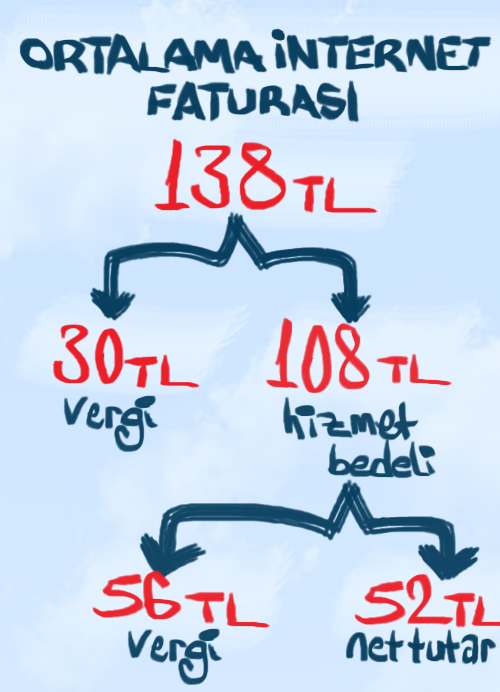 ORTALAMA İNTERNET
FATURASI
138 TL
30 TL
vergi
108 TL
hizmet
bedeli
56 TL
vergi
52 TL
net tutar